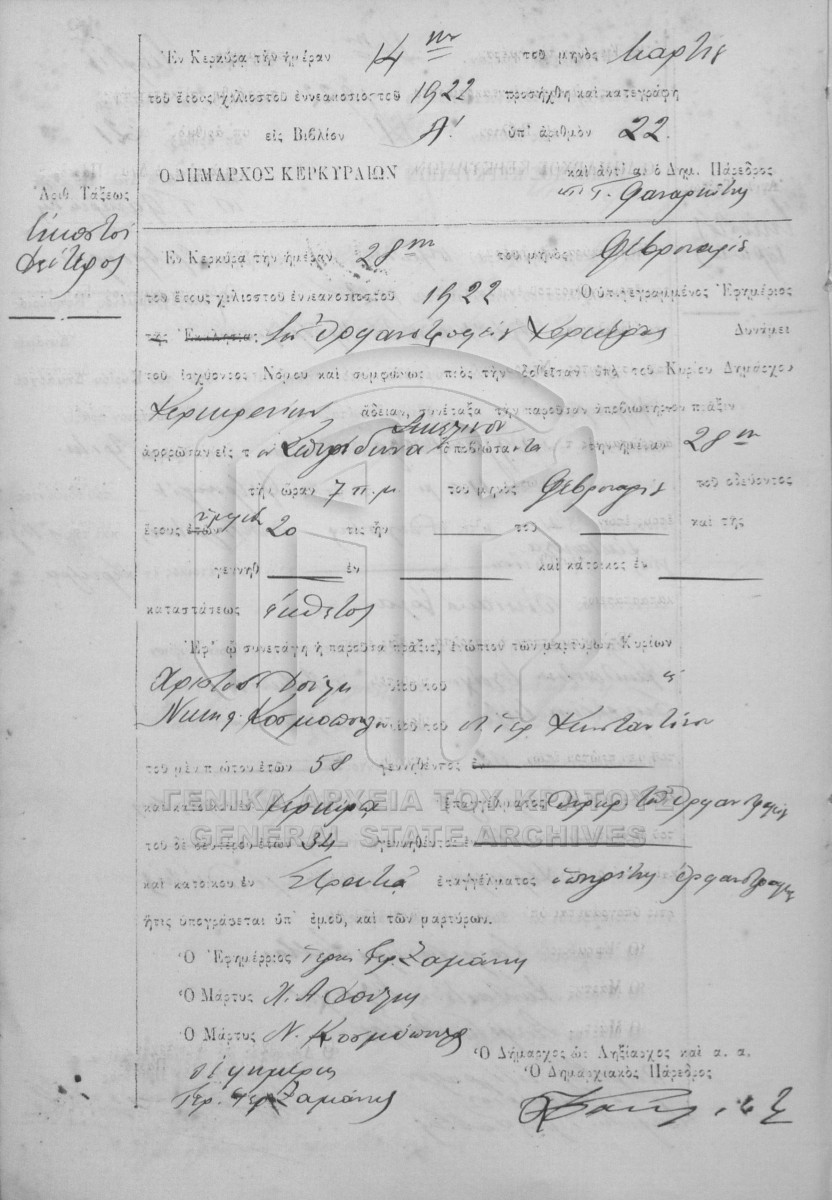 Ἐν Κερκύρᾳ τὴν ἡμέραν 14ην τοῦ μηνὸς Μαρτίου
τοῦ ἔτους χιλιοστοῦ ἐννεακοσιοστοῦ 1922 προσήχθη καὶ κατεγράφη
εἰς Βιβλίον Α' ὑπ' ἀριθμὸν 22.
Ο ΔΗΜΑΡΧΟΣ ΚΕΡΚΥΡΑΙΩΝ
καὶ ἀντ' α. ὁ Δημ. Πάρεδρος
Ἀριθ. Τάξεως
Εἰκοστὸς
δεύτερος
Ἐν Κερκύρᾳ τὴν ἡμέραν 28ην τοῦ μηνὸς Φεβρουαρίου
τοῦ ἔτους χιλιοστοῦ ἐννεακοσιοστοῦ 1922 Ὁ ὑπογεγραμμένος Ἐφημέριος
τῆς Ἐκκλησίας τοῦ Ὀρφανοτροφείου Κερκύρας Δυνάμει
τοῦ ἰσχύοντος Νόμου καὶ συμφώνως πρὸς τὴν δοθεῖσαν ὑπὸ τοῦ Κυρίου Δημάρχου
Κερκυραίων ἄδειαν, συνέταξα τὴν παροῦσαν ἀποβιωτήριον πρᾶξιν
ἀφορῶσαν εἰς τ ὸν Σπυρίδωνα ἀποβιώσαντα τὴν ἡμέραν 28ην
τὴν ὥραν 7 π.μ τοῦ μηνὸς Φεβρουαρίου τοῦ ὁδεύοντος
ἔτους ἐτῶν ἡμερῶν 20 τις ἦν τοῦ καὶ τῆς
γεννηθ ἐν καὶ κάτοικος ἐν
καταστάσεως ἔκθετος
Ἐφ' ᾧ συνετάγη ἡ παροῦσα πρᾶξις, ἐνώπιον τῶν μαρτύρων Κυρίων
Χρίστου Δούλη υἱοῦ τοῦ "
Νικηφ. Κοσμοπούλου υἱοῦ τοῦ Κωνσταντίνου
τοῦ μὲν πρώτου ἐτῶν 58 γεννηθέντος ἐν
καὶ κατοίκου ἐν Κέρκυρα ἐπαγγέλματος τοῦ Ὀρφανοτροφείου
τοῦ δὲ δευτέρου ἐτῶν 34 γεννηθέντος ἐν
καὶ κατοίκου ἐν Στρατιᾷ ἐπαγγέλματος ὑπηρέτης Ὀρφανοτροφείου
ἥτις ὑπογράφεται ὑπ' ἐμοῦ, καὶ τῶν μαρτύρων.
Ὁ Ἐφημέριος Ἱερεὺς Γερ. Ζαμάνης
Ὁ Μάρτυς Χ. Α Δούλης
Ὁ Μάρτυς Ν. Κοσμόπουλος
Ὁ Δήμαρχος ὡς Ληξίαρχος καὶ α. α.
Ὁ Δημαρχιακὸς Πάρεδρος
ὁ Ἐφημέριος
Ἱερ. Γερ. Ζαμάνης
ΓΕΝΙΚΑ ΑΡΧΕΙΑ ΤΟΥ ΚΡΑΤΟΥΣ
GENERAL STATE ARCHIVES